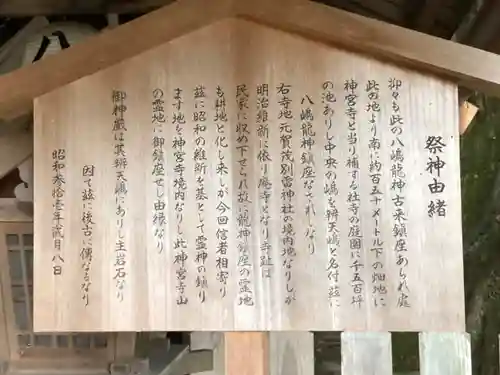 祭神由緒
抑々も此の八嶋龍神古来鎮座あられ處
此の地より南に約百五十メートル下の畑地に
神宮寺と当り補する社寺の庭園に千五百坪
の池ありし中央の嶋を辨天嶋と名付玆に
八嶋龍神鎮座なされしなり
右寺地元賀茂別雷神社の境内地なりしが
明治維新に依り廃寺となり寺趾は
民家に収め下せられ故に龍神鎮座の霊地
も耕地と化し来しが今回信者相寄り
玆に昭和の維新を基として霊神の鎮り
ます地を神宮寺境内なりし此神宮寺山
の霊地に御鎮座せし由縁なり
御神蔵は其辨天嶋にありし主岩石なり
因て玆に後古に傳なるなり
昭和参拾壱年貳月八日